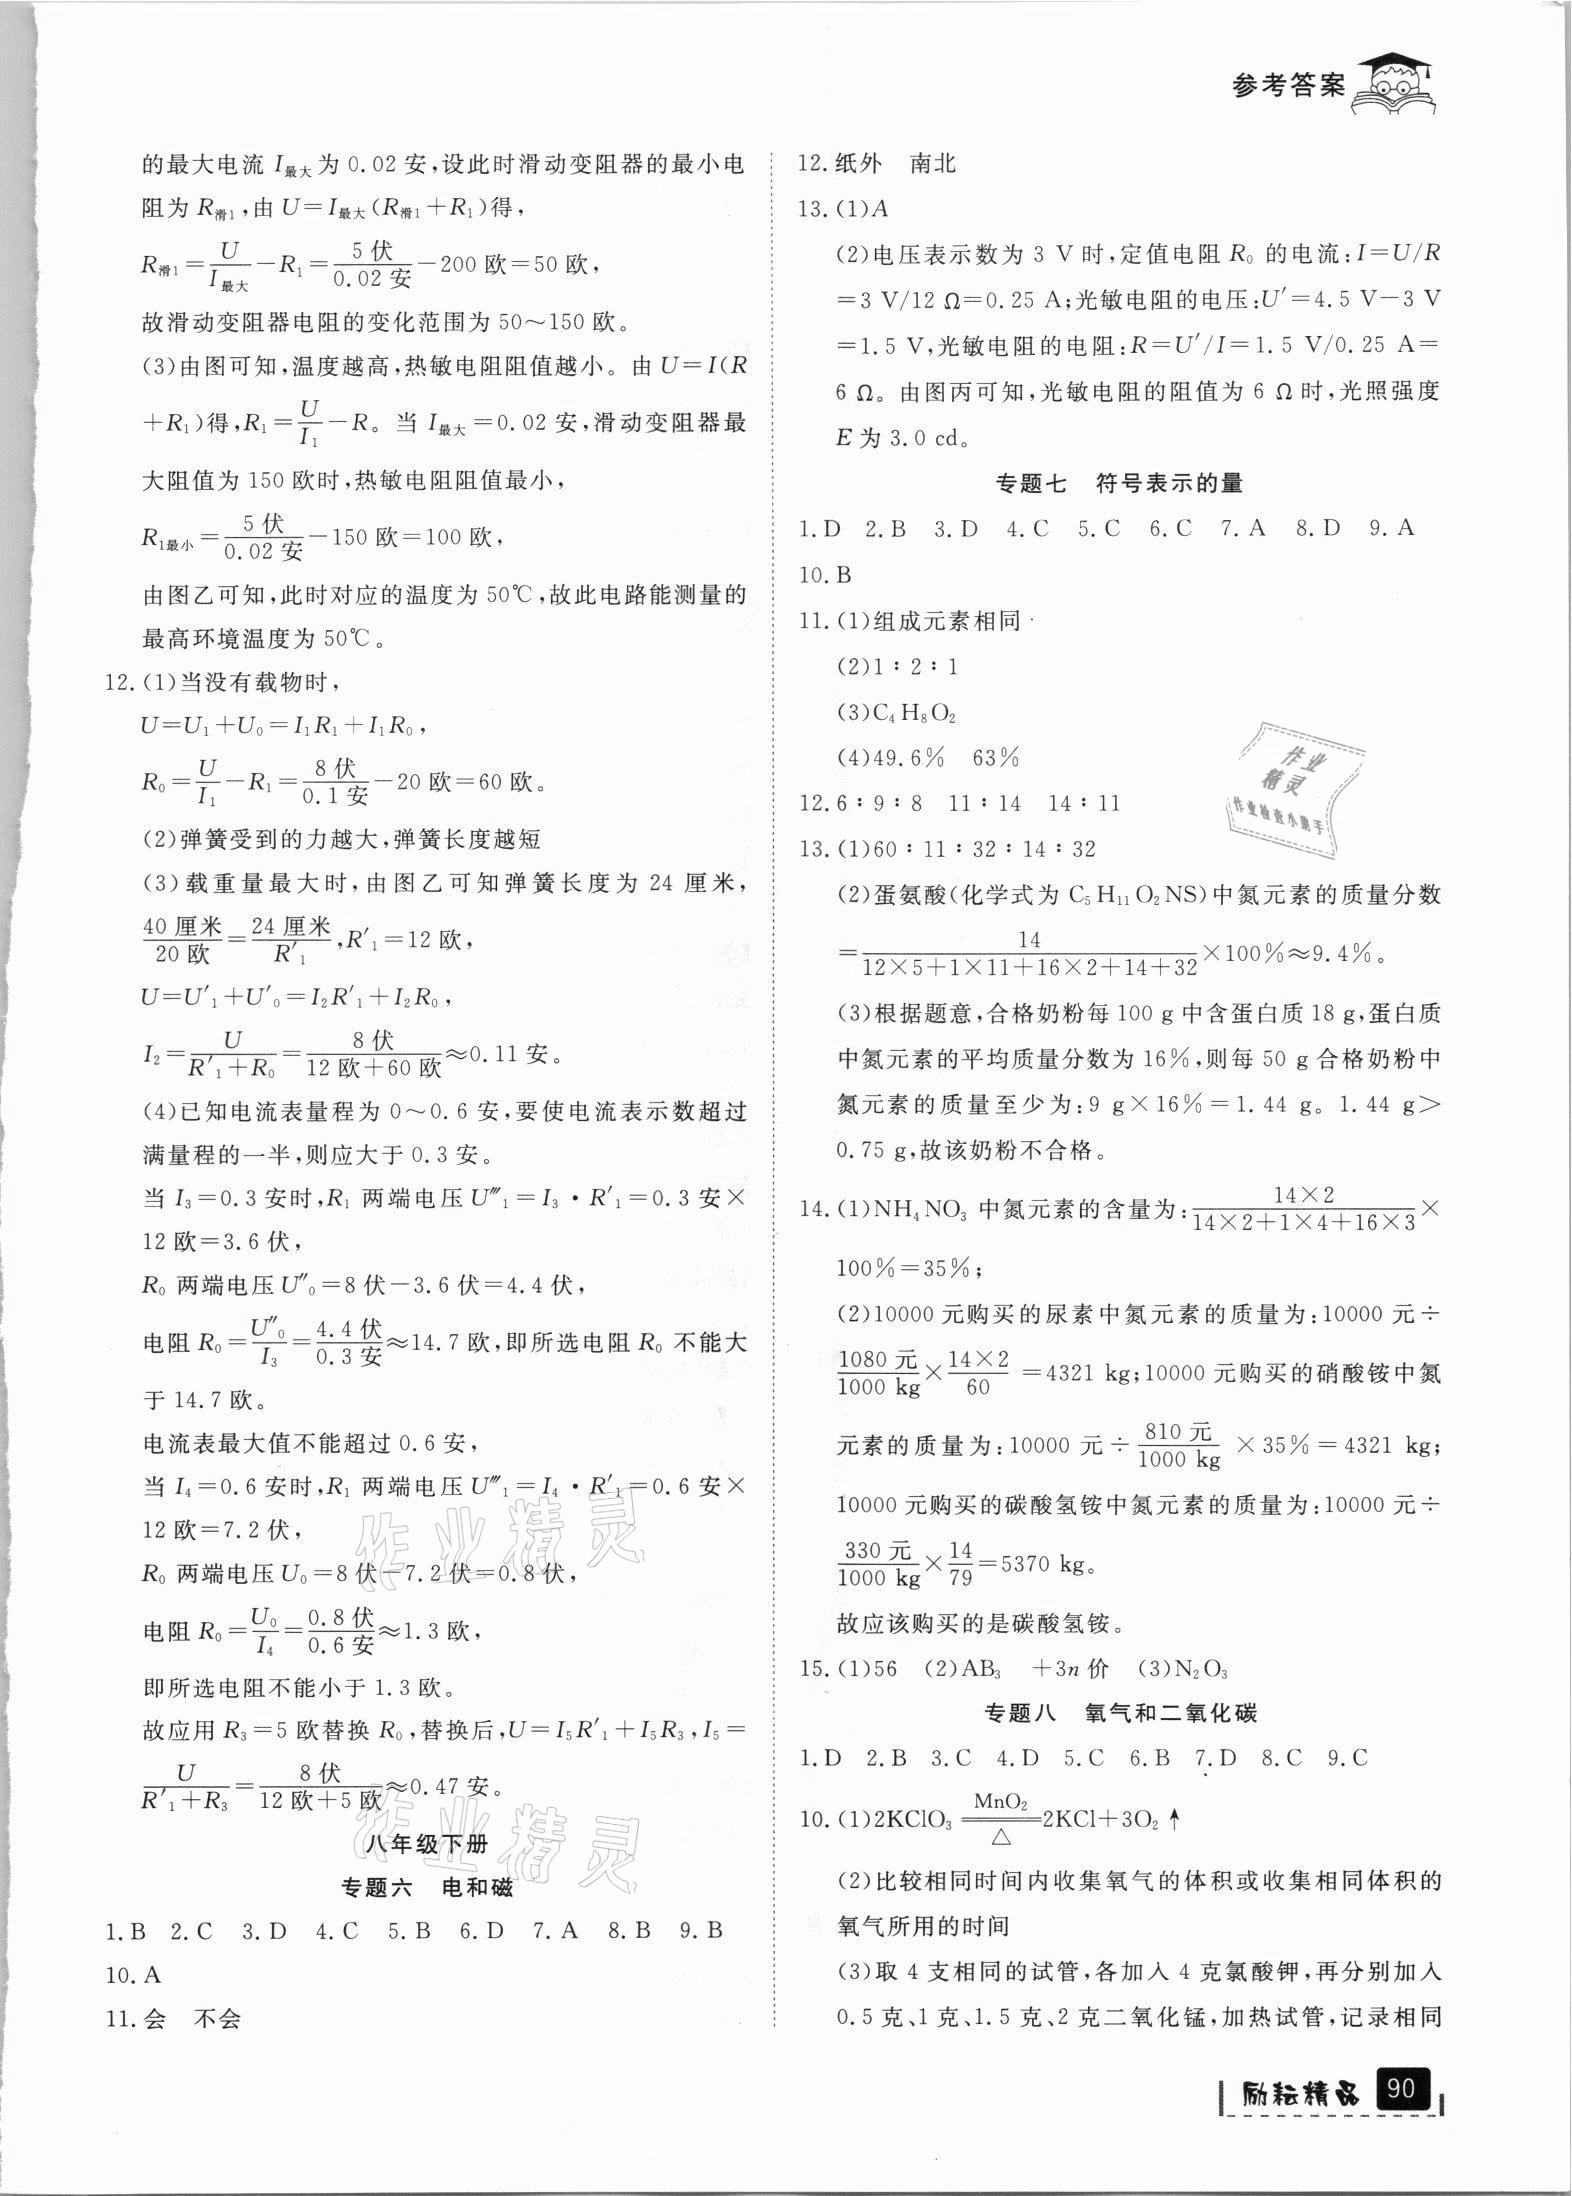 参考答案
的最大电流 I最大 为 0.02 安,设此时滑动变阻器的最小电
阻为 R滑1,由 U=I最大(R滑1+R₁)得,
R滑1=U/I最大-R₁=5 伏/0.02 安-200 欧=50 欧,
故滑动变阻器电阻的变化范围为 50~150 欧。
(3)由图可知,温度越高,热敏电阻阻值越小。由 U=I(R
+R₁)得,R₁=U/I₁-R。当 I最大=0.02 安,滑动变阻器最
大阻值为 150 欧时,热敏电阻阻值最小,
R1最小=5 伏/0.02 安-150 欧=100 欧,
由图乙可知,此时对应的温度为 50℃,故此电路能测量的
最高环境温度为 50℃。
12.(1)当没有载物时,
U=U₁+U₀=I₁R₁+I₁R₀,
R₀=U/I₁-R₁=8 伏/0.1 安-20 欧=60 欧。
(2)弹簧受到的力越大,弹簧长度越短
(3)载重量最大时,由图乙可知弹簧长度为 24 厘米,
40 厘米/20 欧=24 厘米/R′₁,R′₁=12 欧,
U=U′₁+U′₀=I₂R′₁+I₂R₀,
I₂=U/(R′₁+R₀)=8 伏/(12 欧+60 欧)≈0.11 安。
(4)已知电流表量程为 0~0.6 安,要使电流表示数超过
满量程的一半,则应大于 0.3 安。
当 I₃=0.3 安时,R₁ 两端电压 U‴₁=I₃・R′₁=0.3 安×
12 欧=3.6 伏,
R₀ 两端电压 U″₀=8 伏-3.6 伏=4.4 伏,
电阻 R₀=U″₀/I₃=4.4 伏/0.3 安≈14.7 欧,即所选电阻 R₀ 不能大
于 14.7 欧。
电流表最大值不能超过 0.6 安,
当 I₄=0.6 安时,R₁ 两端电压 U‴₁=I₄・R′₁=0.6 安×
12 欧=7.2 伏,
R₀ 两端电压 U₀=8 伏-7.2 伏=0.8 伏,
电阻 R₀=U₀/I₄=0.8 伏/0.6 安≈1.3 欧,
即所选电阻不能小于 1.3 欧。
故应用 R₃=5 欧替换 R₀,替换后,U=I₅R′₁+I₅R₃,I₅=
U/(R′₁+R₃)=8 伏/(12 欧+5 欧)≈0.47 安。
八年级下册
专题六 电和磁
1.B 2.C 3.D 4.C 5.B 6.D 7.A 8.B 9.B
10.A
11.会 不会
12.纸外 南北
13.(1)A
(2)电压表示数为 3 V 时,定值电阻 R₀ 的电流:I=U/R
=3 V/12 Ω=0.25 A;光敏电阻的电压:U′=4.5 V-3 V
=1.5 V,光敏电阻的电阻:R=U′/I=1.5 V/0.25 A=
6 Ω。由图丙可知,光敏电阻的阻值为 6 Ω 时,光照强度
E 为 3.0 cd。
专题七 符号表示的量
1.D 2.B 3.D 4.C 5.C 6.C 7.A 8.D 9.A
10.B
11.(1)组成元素相同
(2)1∶2∶1
(3)C₄H₈O₂
(4)49.6% 63%
12.6∶9∶8 11∶14 14∶11
13.(1)60∶11∶32∶14∶32
(2)蛋氨酸(化学式为 C₅H₁₁O₂NS)中氮元素的质量分数
=14/(12×5+1×11+16×2+14+32)×100%≈9.4%。
(3)根据题意,合格奶粉每 100 g 中含蛋白质 18 g,蛋白质
中氮元素的平均质量分数为 16%,则每 50 g 合格奶粉中
氮元素的质量至少为:9 g×16%=1.44 g。1.44 g>
0.75 g,故该奶粉不合格。
14.(1)NH₄NO₃ 中氮元素的含量为:14×2/(14×2+1×4+16×3)×
100%=35%;
(2)10000 元购买的尿素中氮元素的质量为:10000 元÷
1080 元/1000 kg×14×2/60=4321 kg;10000 元购买的硝酸铵中氮
元素的质量为:10000 元÷810 元/1000 kg×35%=4321 kg;
10000 元购买的碳酸氢铵中氮元素的质量为:10000 元÷
330 元/1000 kg×14/79=5370 kg。
故应该购买的是碳酸氢铵。
15.(1)56 (2)AB₃ +3n 价 (3)N₂O₃
专题八 氧气和二氧化碳
1.D 2.B 3.C 4.D 5.C 6.B 7.D 8.C 9.C
10.(1)2KClO₃ =MnO₂/△= 2KCl+3O₂↑
(2)比较相同时间内收集氧气的体积或收集相同体积的
氧气所用的时间
(3)取 4 支相同的试管,各加入 4 克氯酸钾,再分别加入
0.5 克、1 克、1.5 克、2 克二氧化锰,加热试管,记录相同
励耘精品 90
作业
精灵
作业检查小助手
作业精灵
作业精灵